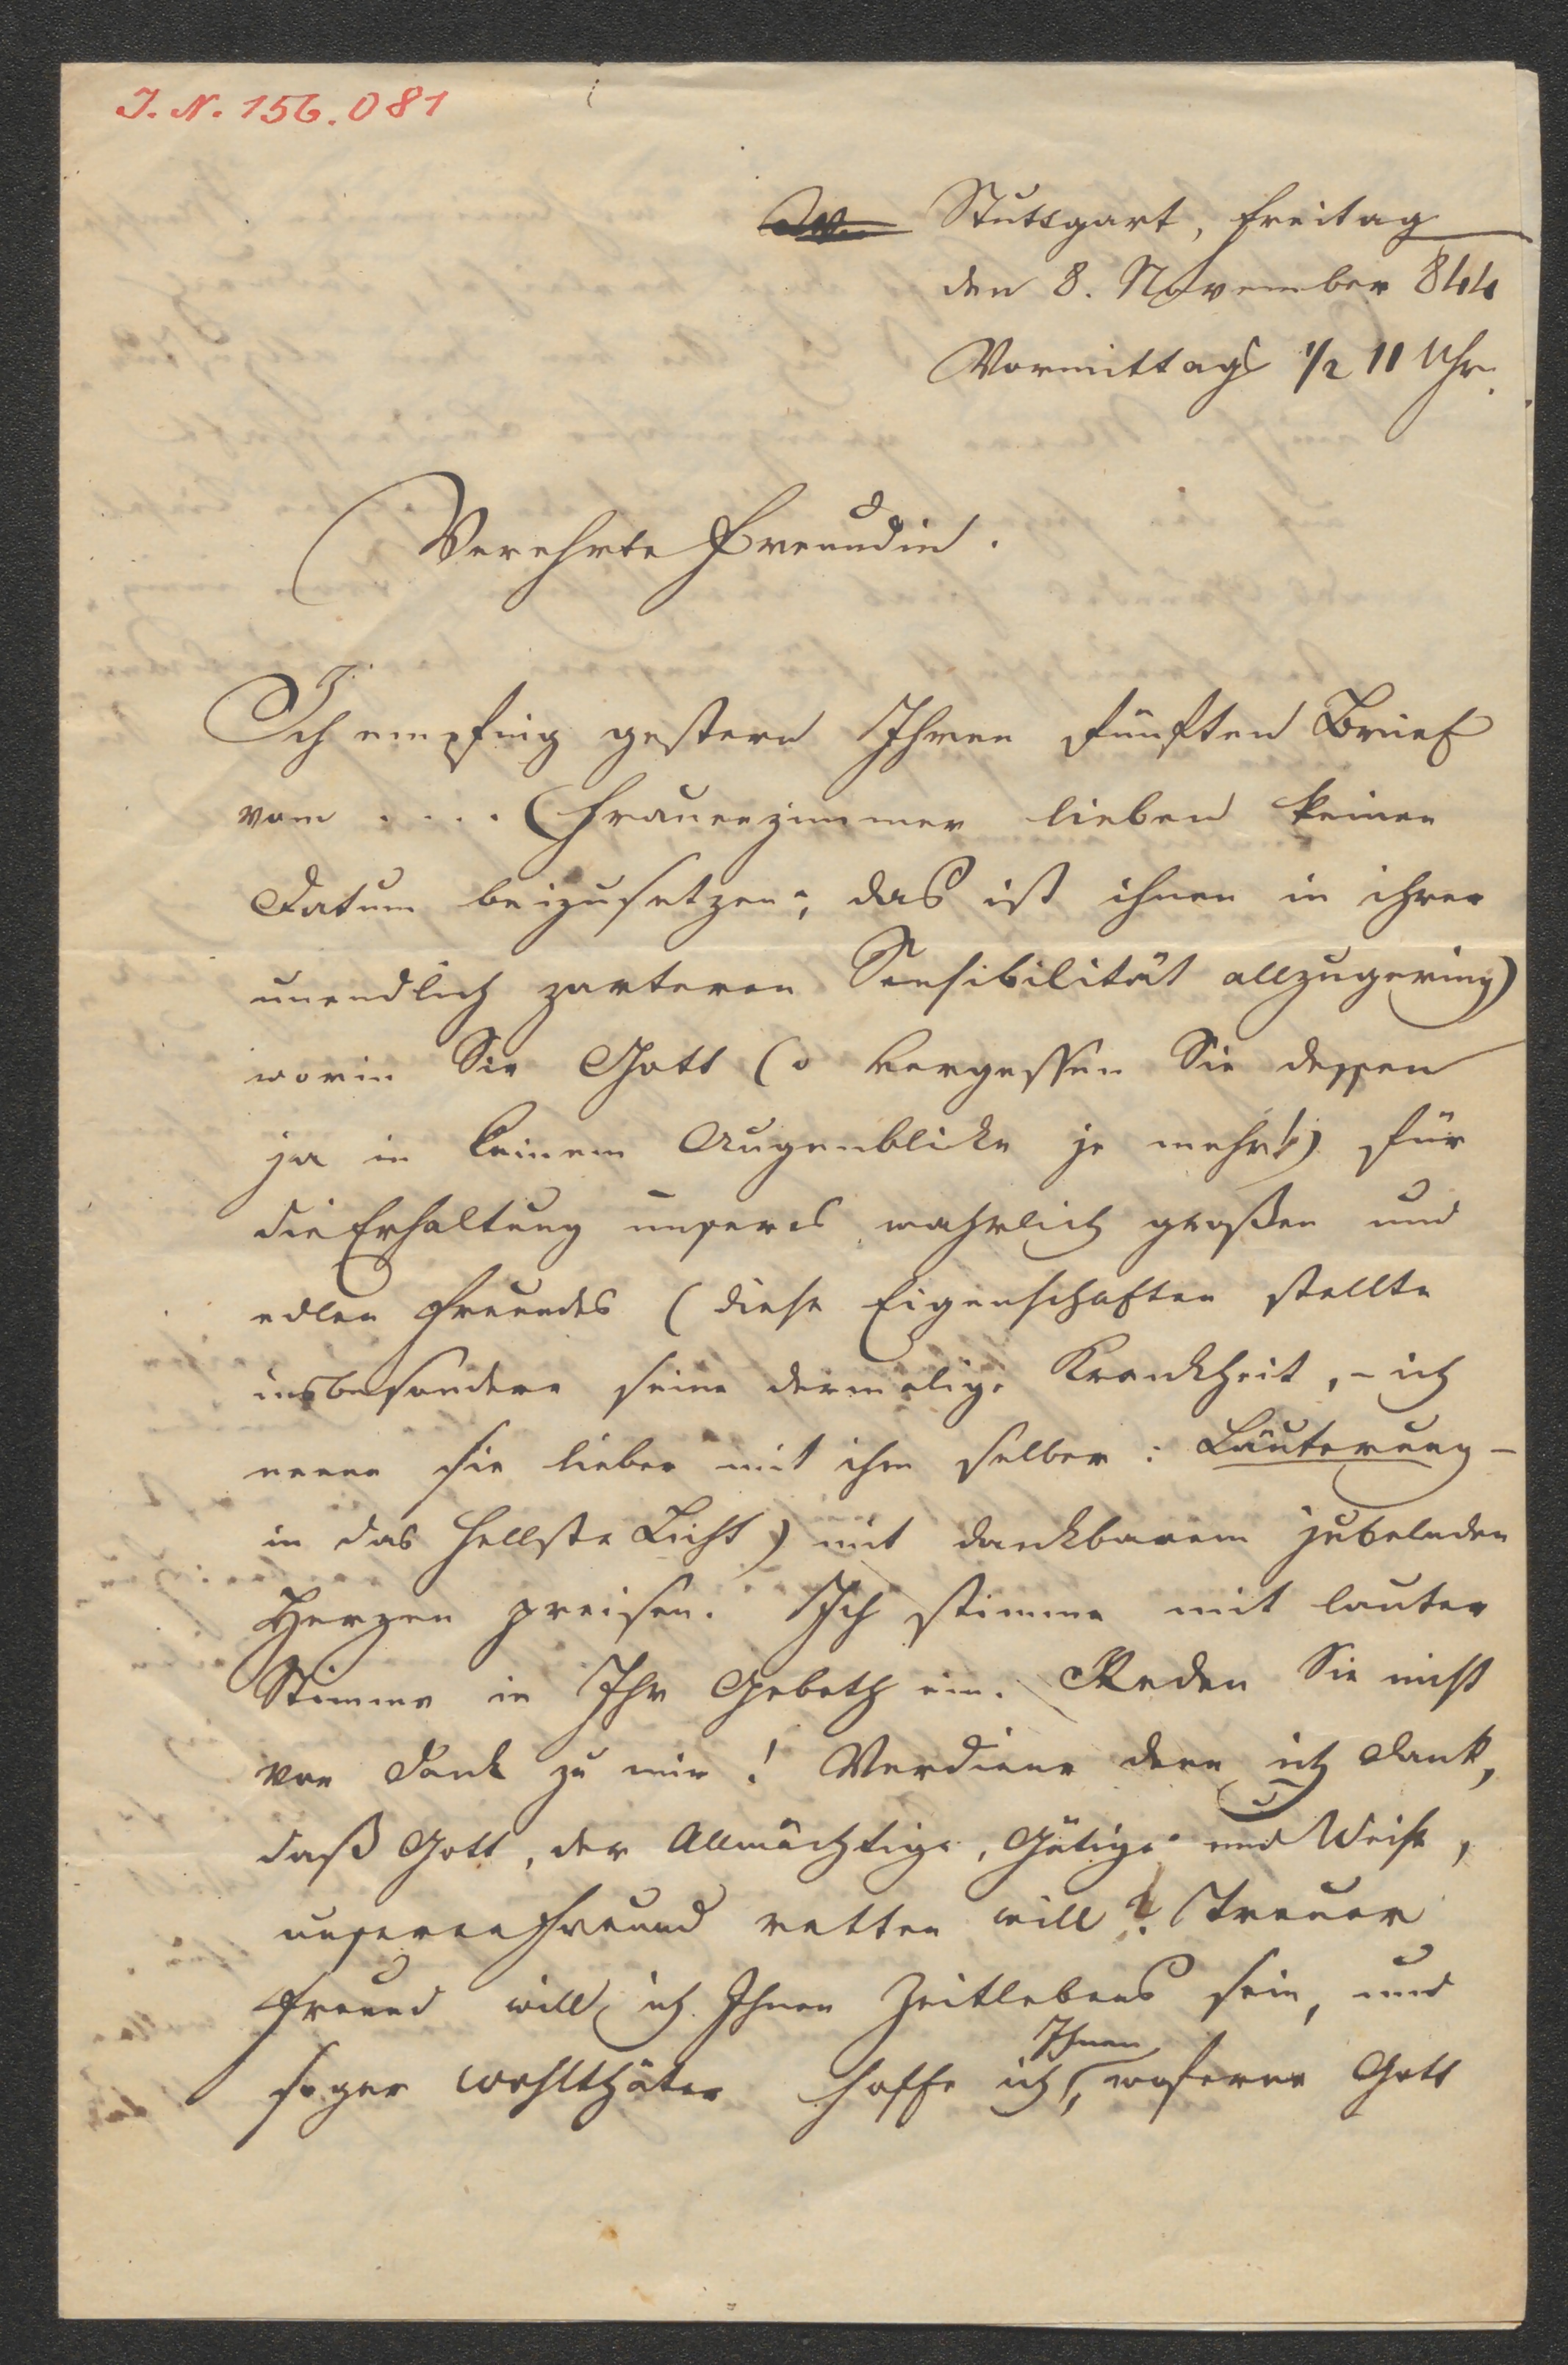 I. N. 156.081
Stuttgart, Freitag
den 8. November 844
Vormittags 1/2 11 Uhr.
Verehrte Freundin.
Ich empfing gestern Ihren fünften Brief
vom .... (Frauenzimmer lieben keinen
Datum beizusetzen; das ist ihnen in ihrer
unendlich zarteren Sensibilität allzugering)
worin Sie Gott (o vergessen Sie dessen
ja in keinem Augenblicke je mehr!) für
die Erhaltung unseres wahrlich großen und
edlen Freundes (diese Eigenschaften stellte
insbesondere seine dermalige Krankheit, – ich
nenne sie lieber mit ihm selber: Läuterung –
in das hellste Licht) mit dankbarem jubelnden
Herzen preisen. Ich stimme mit lauter
Stimme in Ihr Gebeth ein. Reden Sie nicht
von Dank zu mir! Verdiene denn ich Dank,
daß Gott, der Allmächtige, Gütige und Weise,
unseren Freund retten will? Treuer
Freund will ich Ihnen Zeitlebens sein, und
sogar Wohlthäter hoffe ich Ihnen, woferne Gott